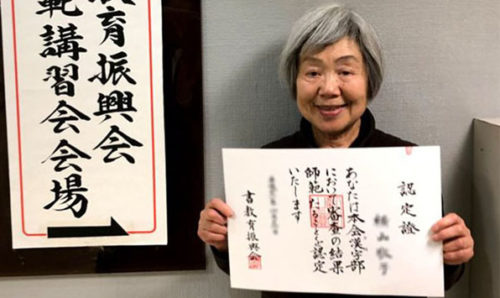 教育振興会
範講習会会場
認定證
あなたは本会漢字部
において審査の結果
師範たることを認定
いたします
書教育振興会